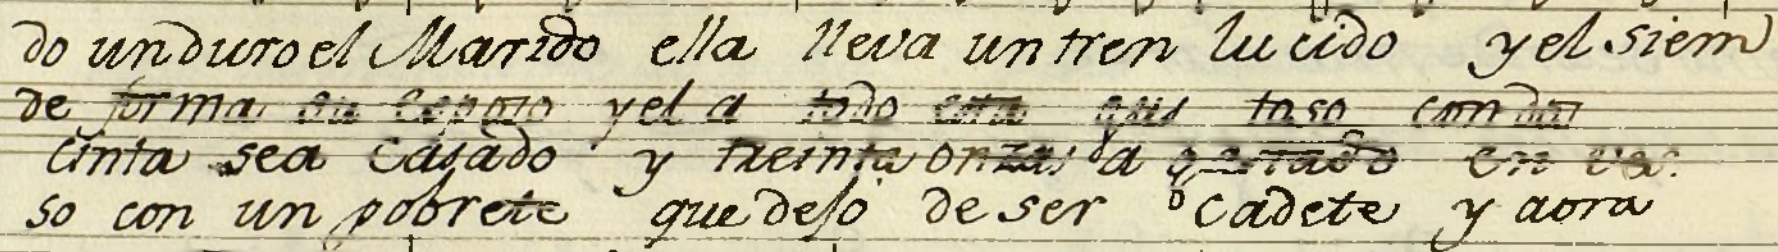 do un duro el Marido ella lleva un tren lucido y el siem
de forma su esposo y el a todo esta gustoso con da
cinta sea casado y treinta onzas a gastado en
so con un pobrete que dejo de ser Cadete y aora